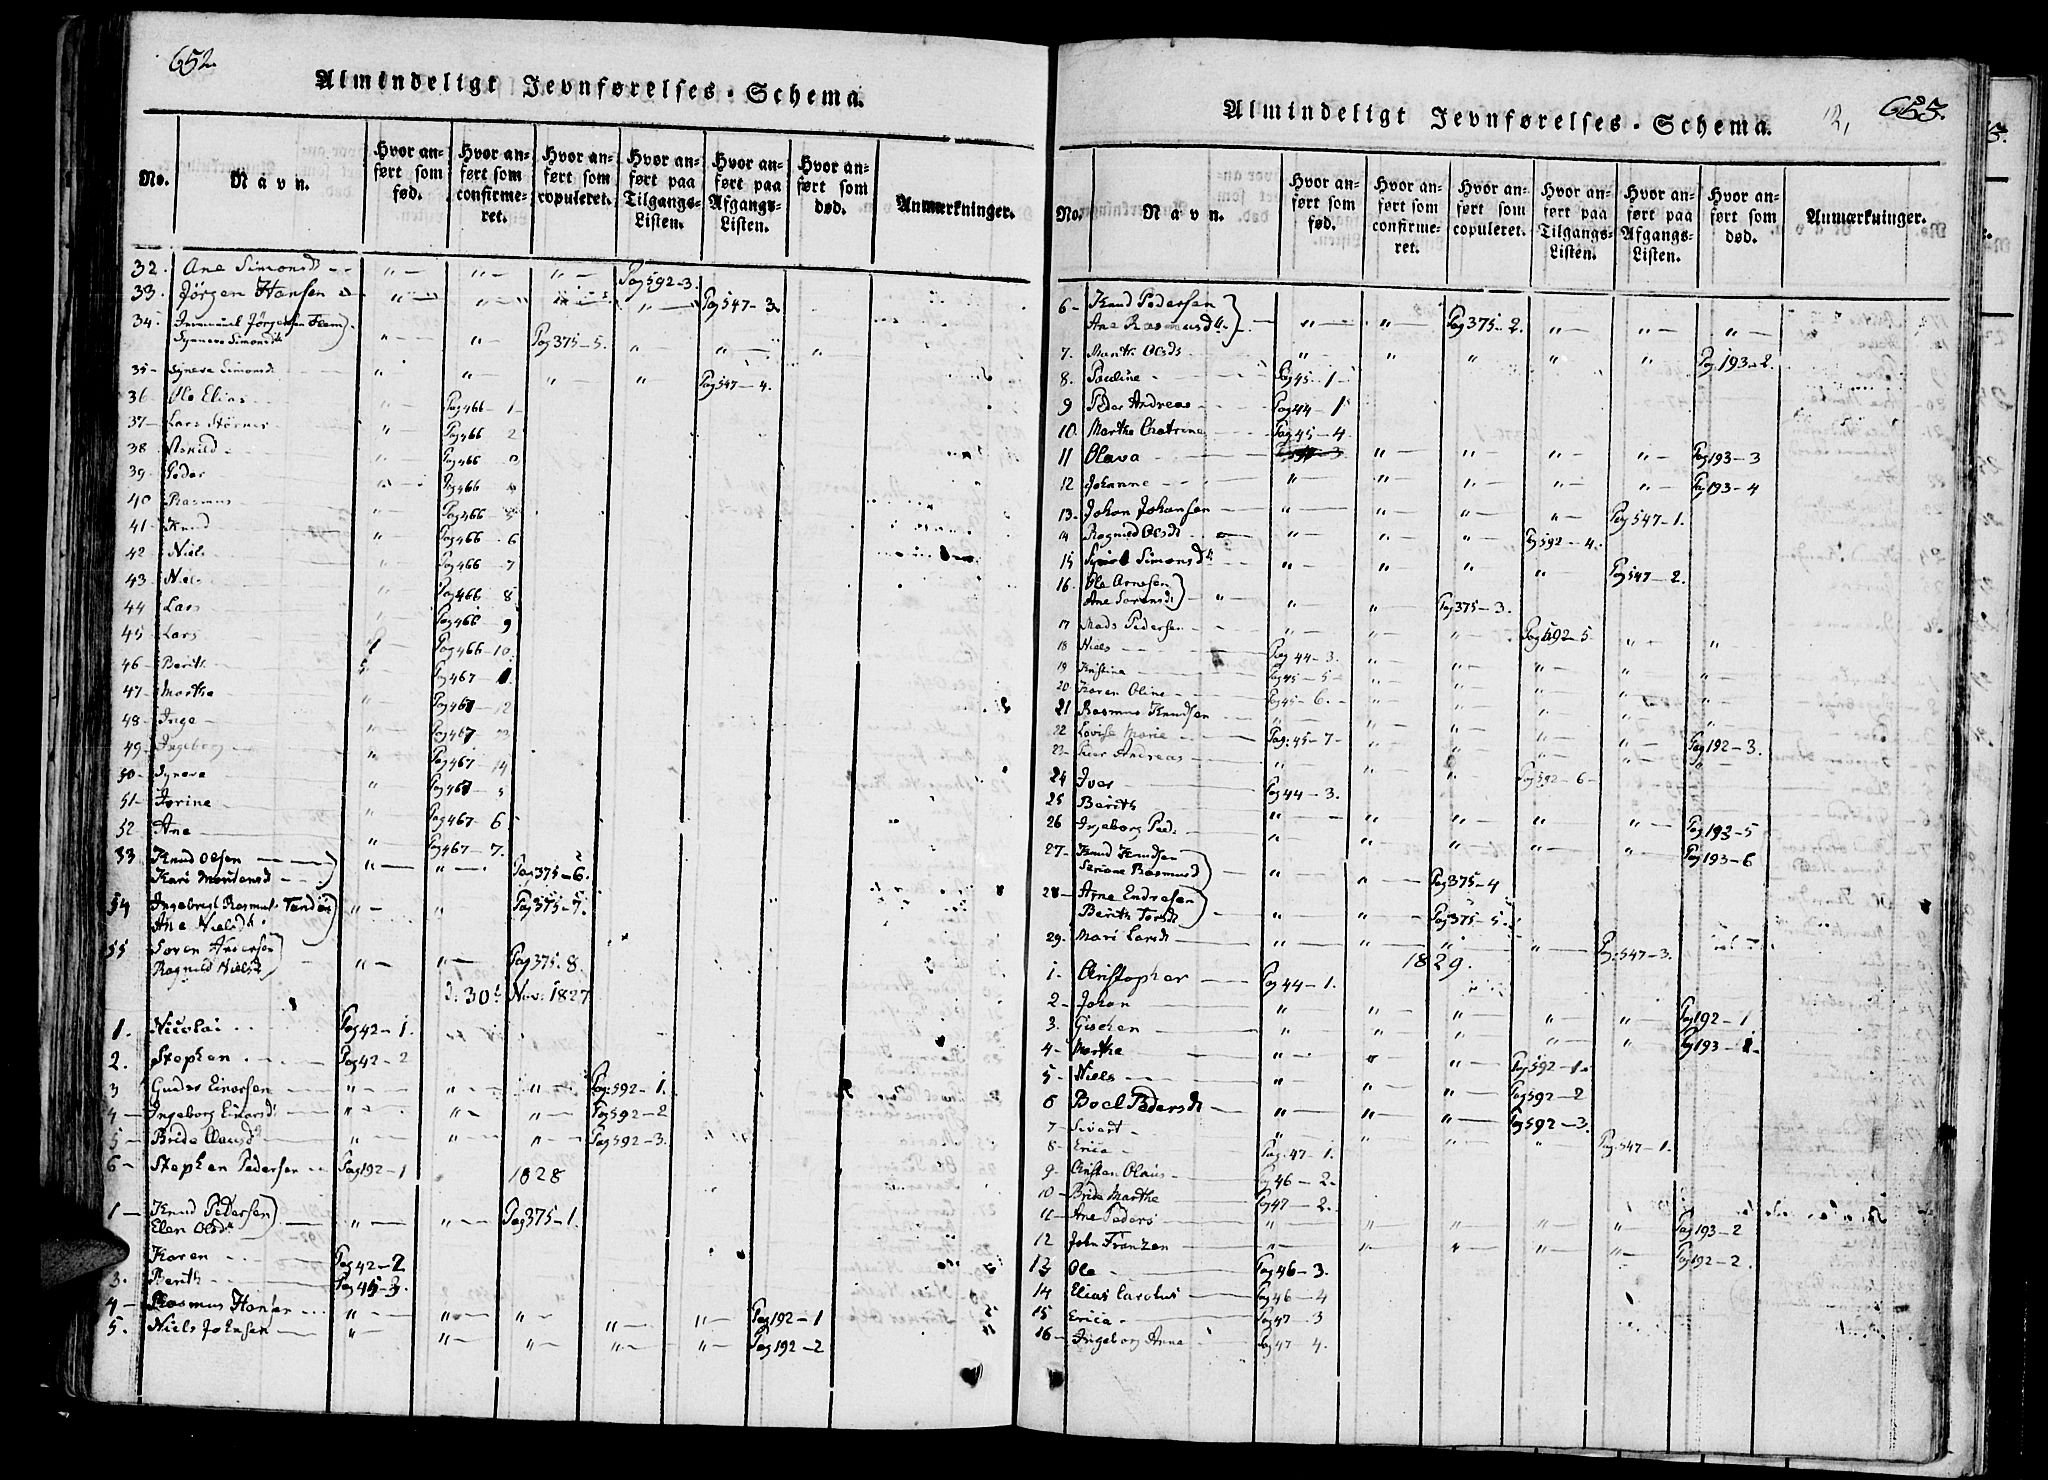 652.
Almindeligt Jevnførelses-Schema.
No.
Navn.
Hvor anført som fød.
Hvor anført som confirmeret.
Hvor anført som copuleret.
Hvor anført paa Tilgangs-Listen.
Hvor anført paa Afgangs-Listen.
Hvor anført som død.
Anmærkninger.
32. Ane Simonsd. " " " Pag 592-3.
33. Jörgen Hansen " " " " Pag 547-3.
34. Jørgensen
Simonsd. " " Pag 375-5. " " "
35- Syneve Simonsd. " " " " Pag 547-4.
36- Ole Elias " Pag 466-1
37- Lars " Pag 466 2
38 Pag 466
39. Peder " Pag 466
40 Rasmus " Pag 466
41- Knud " Pag 466 6
42- Niels " Pag 466 7
43. Niels " Pag 466 8
44 Lars " Pag 466 9
45 Lars Pag 466-10.
46- Berith Pag 467
47- Marthe " Pag 467
48- Inge " Pag 467
49- Ingeborg " Pag 467
50- Syneve " Pag 467
51- Jorine " Pag 467-6
52- Ane " Pag 467-7.
53 Knud Olsen
Kari Mortensd. " " Pag 375-6.
54 Ingebregt Rasmus. Tandøi
Ane Nielsd. " " Pag 375-7.
55 Soren Andersen
Ragnild Nielsd. " " Pag 375-8.
d. 30t Nov. 1827
1. Nicolai Pag 42-1.
2. Stephen Pag 42-2
3 Gunder Einersen " " " Pag: 592-1.
4- Ingeborg Einersd. " " " Pag 592-2
5- Bride Clausd. " " " Pag 592-3.
6- Stephen Pedersen Pag 192-1
1828
1- Knud Pedersen
Elen Olsd. " " Pag 375-1.
Karen Pag 42-2
3. Berith Pag 45-3.
4- Rasmus Hansen " " " " " Pag 192-1
5. Niels Johnsen " " " " " Pag 192-2
653.
Almindeligt Jevnførelses-Schema.
No.
Navn.
Hvor anført som fød.
Hvor anført som confirmeret.
Hvor anført som copuleret.
Hvor anført paa Tilgangs-Listen.
Hvor anført paa Afgangs-Listen.
Hvor anført som død.
Anmærkninger.
6- Knud Pedersen
Ane Rasmusd. " " Pag 375-2. " " "
7. Olsd. " " " " " Pag 193-2.
8. Pauline Pag 45-1-
9 Peder Andreas Pag 44-1
10. Marthe Chatrine Pag 45-4
11 Olava " " " " Pag 193-3
12 Johanne " " " " " Pag 193-4
13. Johan Johansen " " " " Pag 547-1.
14 Ragnild Olsd. " " " Pag 592-4.
15 Simonsd. " " " " Pag 547-2.
16. Ole Arnesen
Ane Sorensd. " " Pag 375-3.
17 Mads Pedersen " " " Pag 592-5. " "
18 Niels Pag 44-3. " " " " "
19 Kristine Pag 45-5- " " " " "
20 Karen Oline Pag 45-6. " " " " "
21 Rasmus Knudsen " " " " " Pag 192-3.
22 Lovise Marie Pag: 45-7- " " " " "
23- Andreas " " " Pag 592-6-
24 Iver Pag 44-3.
25 Berith " " " " " Pag 193-5
26 Ingeborg Ped. " " " " " Pag 193-6
27- Knud Knudsen
Seriane Rasmusd. " " Pag 375-4
28- Arne Endresen
Berith Larsd. " " Pag 375-5
29. Mari Larsd. " " " " Pag: 547-3.
1829.
1. Christopher Pag 44-1.
2- Johan " " " " " Pag 192-1
3. " " " " " Pag 193-1-
4- Marthe " " " Pag 592-1.
5- Niels " " " Pag 592-2
6 Boel Pedersd. " " " Pag 592-3.
7- Sivert " " " " Pag 547-1.
8. Erica Pag. 47-1.
9- Christen Olaus Pag 46-2.
10- Bride Marthe Pag 47-2.
11- Ane Peders " " " " " Pag 193-2
12 John Franzen " " " " " Pag 192-2.
13 Ole Pag 46-3.
14 Elias Carolus Pag 46-4
15 Erica Pag 47-3
16- Ingeborg Anne Pag 47-4.